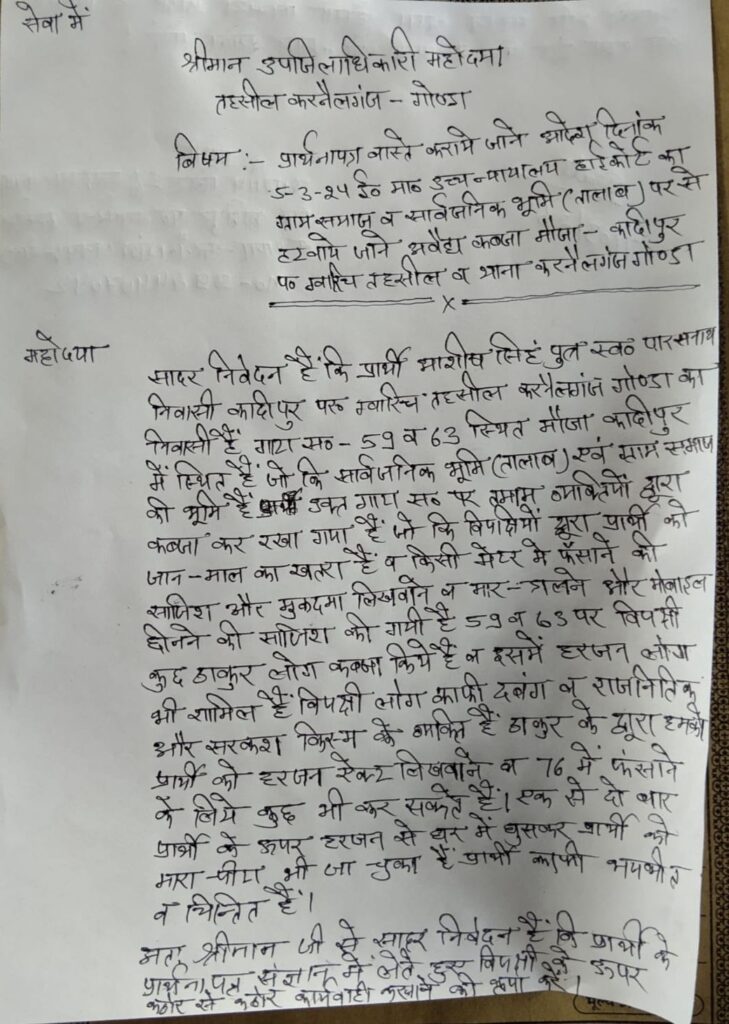 सेवा में
श्रीमान उपजिलाधिकारी महोदया
तहसील करनैलगंज - गोण्डा
विषय :- प्रार्थनापत्र वास्ते कराये जाने आदेश दिनांक
5-3-24 ई० मा० उच्च न्यायालय हाईकोर्ट का
ग्राम समाज व सार्वजनिक भूमि (तालाब) पर से
हटवाये जाने अवैद्य कब्जा मौजा - कादीपुर
प० ग्वारिच तहसील व थाना करनैलगंज गोण्डा
x
महोदया
सादर निवेदन हैं कि प्रार्थी आशीष सिंह पुत्र स्व० पारसनाथ
निवासी कादीपुर पर० ग्वारिच तहसील करनैलगंज गोण्डा का
निवासी हैं गाटा स० - 59 व 63 स्थित मौजा कादीपुर
में स्थित हैं जो कि सार्वजनिक भूमि (तालाब) एवं ग्राम समाज
की भूमि हैं उक्त गाटा स० पर तमाम व्यक्तियों द्वारा
कब्जा कर रखा गया हैं जो कि विपक्षियों द्वारा प्रार्थी को
जान-माल का खतरा हैं व किसी मेटर मे फँसाने की
साजिश और मुकदमा लिखवाने व मार-डालने और मोबाइल
छीनने की साजिश की गयी है 59 व 63 पर विपक्षी
कुछ ठाकुर लोग कब्जा किये हैं व इसमें हरजन लोग
भी शामिल हैं विपक्षी लोग काफी दबंग व राजनितिक
और सरकश किस्म के व्यक्ति हैं ठाकुर के द्वारा हमको
प्रार्थी को हरजन ऐक्ट लिखवाने व 76 में फंसाने
के लिये कुछ भी कर सकते हैं। एक से दो बार
प्रार्थी के ऊपर हरजन से घर में घुसकर प्रार्थी को
मारा-पीटा भी जा चुका हैं प्रार्थी काफी भयभीत
व चिन्तित हैं।
अतः श्रीमान जी से सादर निवेदन हैं कि प्रार्थी के
प्रार्थना पत्र संज्ञान में लेते हुए विपक्षी के ऊपर
कठोर से कठोर कार्यवाही करवाने की कृपा करें।